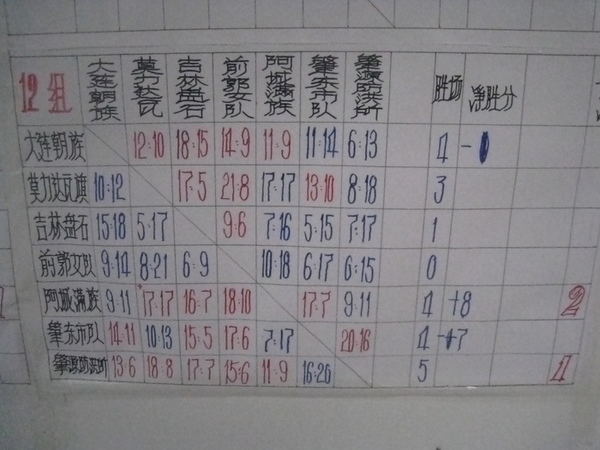 12组 大连朝族 莫力达瓦 吉林盘石 前郭女队 阿城满族 肇东市队 肇源防洪所 胜场 净胜分
大连朝族 12:10 18:15 14:9 11:9 11:14 6:13 4 -
莫力达瓦旗 10:12 17:5 21:8 17:17 13:10 8:18 3
吉林盘石 15:18 5:17 9:6 7:16 5:15 7:17 1
前郭女队 9:14 8:21 6:9 10:18 6:17 6:15 0
阿城满族 9:11 17:17 16:7 18:10 17:7 9:11 4 +8 2
肇东市队 14:11 10:13 15:5 17:6 7:17 20:16 4 7
肇源防洪所 13:6 18:8 17:7 15:6 11:9 16:20 5 1